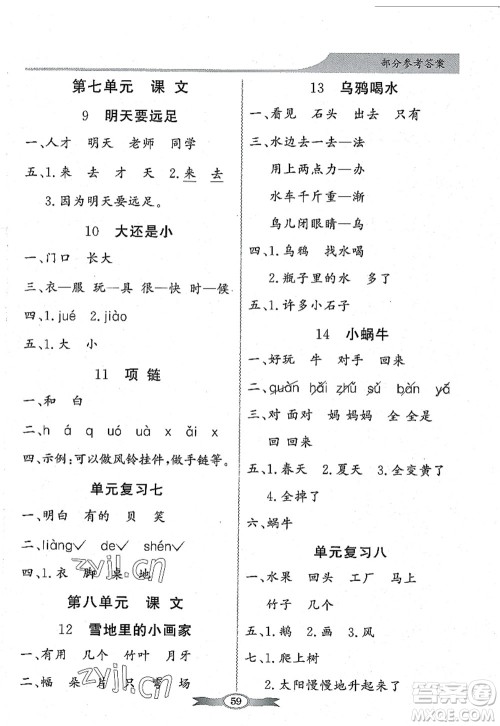 部分参考答案
第七单元 课文
9 明天要远足
一、人才 明天 老师 同学
五、1.来 去 才 天 2.来 去
3.因为明天要远足。
10 大还是小
一、门口 长大
三、衣—服 玩—具 很—快 时—候
四、1.jué 2.jiào
五、1.大 小
11 项 链
一、和 白
二、h á q uó uà x iào
四、示例:可以做风铃挂件,做手链等。
单元复习七
一、明白 有的 贝 笑
二、liàng✓ de✓ shén✓
四、1.衣 脚 桌 地
第八单元 课文
12 雪地里的小画家
一、有用 几个 竹叶 月牙
二、幅 朵 片 只 群
13 乌鸦喝水
一、看见 石头 出来
三、水边去一去—法
用上两点力—办
水车千斤重—渐
鸟儿闭眼睛—乌
四、1.乌鸦 找水喝
2.瓶子里的水 多了
五、1.许多小石子
14 小蜗牛
一、好玩 牛 对手 回来
二、quán hǎi zhù sǔ bàn yá
三、对 面对 妈 妈妈 全 全家
回 回来
五、1.春天 2.夏天 3.全变黄了
4.全变白了
六、蜗牛
单元复习八
一、水果 回去 工厂 马车
竹子 几个
五、1.鹅 2.画 3.牛
七、1.爬上树
2.太阳慢慢地升起来
59
zyjl.cn
zyjl.cn
答案圈
MXQE.COM